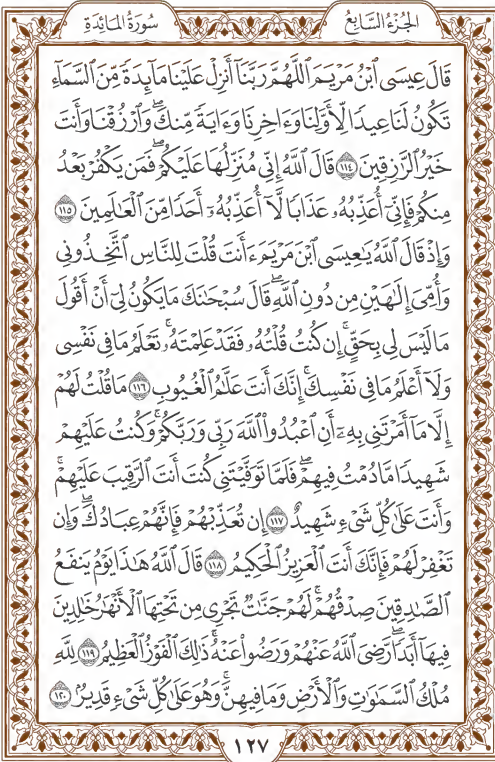 سُورَةُ المَائِدَةِ
الجُزْءُ السَّابِعُ
قَالَ عِيسَى ٱبْنُ مَرْيَمَ ٱللَّهُمَّ رَبَّنَآ أَنزِلْ عَلَيْنَا مَآئِدَةً مِّنَ ٱلسَّمَآءِ
تَكُونُ لَنَا عِيدًا لِّأَوَّلِنَا وَءَاخِرِنَا وَءَايَةً مِّنكَۖ وَٱرْزُقْنَا وَأَنتَ
خَيْرُ ٱلرَّٰزِقِينَ ١١٤ قَالَ ٱللَّهُ إِنِّى مُنَزِّلُهَا عَلَيْكُمْۖ فَمَن يَكْفُرْ بَعْدُ
مِنكُمْ فَإِنِّىٓ أُعَذِّبُهُۥ عَذَابًا لَّآ أُعَذِّبُهُۥٓ أَحَدًا مِّنَ ٱلْعَٰلَمِينَ ١١٥
وَإِذْ قَالَ ٱللَّهُ يَٰعِيسَى ٱبْنَ مَرْيَمَ ءَأَنتَ قُلْتَ لِلنَّاسِ ٱتَّخِذُونِى
وَأُمِّىَ إِلَٰهَيْنِ مِن دُونِ ٱللَّهِۖ قَالَ سُبْحَٰنَكَ مَا يَكُونُ لِىٓ أَنْ أَقُولَ
مَا لَيْسَ لِى بِحَقٍّۚ إِن كُنتُ قُلْتُهُۥ فَقَدْ عَلِمْتَهُۥۚ تَعْلَمُ مَا فِى نَفْسِى
وَلَآ أَعْلَمُ مَا فِى نَفْسِكَۚ إِنَّكَ أَنتَ عَلَّٰمُ ٱلْغُيُوبِ ١١٦ مَا قُلْتُ لَهُمْ
إِلَّا مَآ أَمَرْتَنِى بِهِۦٓ أَنِ ٱعْبُدُوا۟ ٱللَّهَ رَبِّى وَرَبَّكُمْۚ وَكُنتُ عَلَيْهِمْ
شَهِيدًا مَّا دُمْتُ فِيهِمْۖ فَلَمَّا تَوَفَّيْتَنِى كُنتَ أَنتَ ٱلرَّقِيبَ عَلَيْهِمْۚ
وَأَنتَ عَلَىٰ كُلِّ شَىْءٍ شَهِيدٌ ١١٧ إِن تُعَذِّبْهُمْ فَإِنَّهُمْ عِبَادُكَۖ وَإِن
تَغْفِرْ لَهُمْ فَإِنَّكَ أَنتَ ٱلْعَزِيزُ ٱلْحَكِيمُ ١١٨ قَالَ ٱللَّهُ هَٰذَا يَوْمُ يَنفَعُ
ٱلصَّٰدِقِينَ صِدْقُهُمْۚ لَهُمْ جَنَّٰتٌ تَجْرِى مِن تَحْتِهَا ٱلْأَنْهَٰرُ خَٰلِدِينَ
فِيهَآ أَبَدًاۖ رَّضِىَ ٱللَّهُ عَنْهُمْ وَرَضُوا۟ عَنْهُۚ ذَٰلِكَ ٱلْفَوْزُ ٱلْعَظِيمُ ١١٩ لِلَّهِ
مُلْكُ ٱلسَّمَٰوَٰتِ وَٱلْأَرْضِ وَمَا فِيهِنَّۚ وَهُوَ عَلَىٰ كُلِّ شَىْءٍ قَدِيرٌۢ ١٢٠
١٢٧